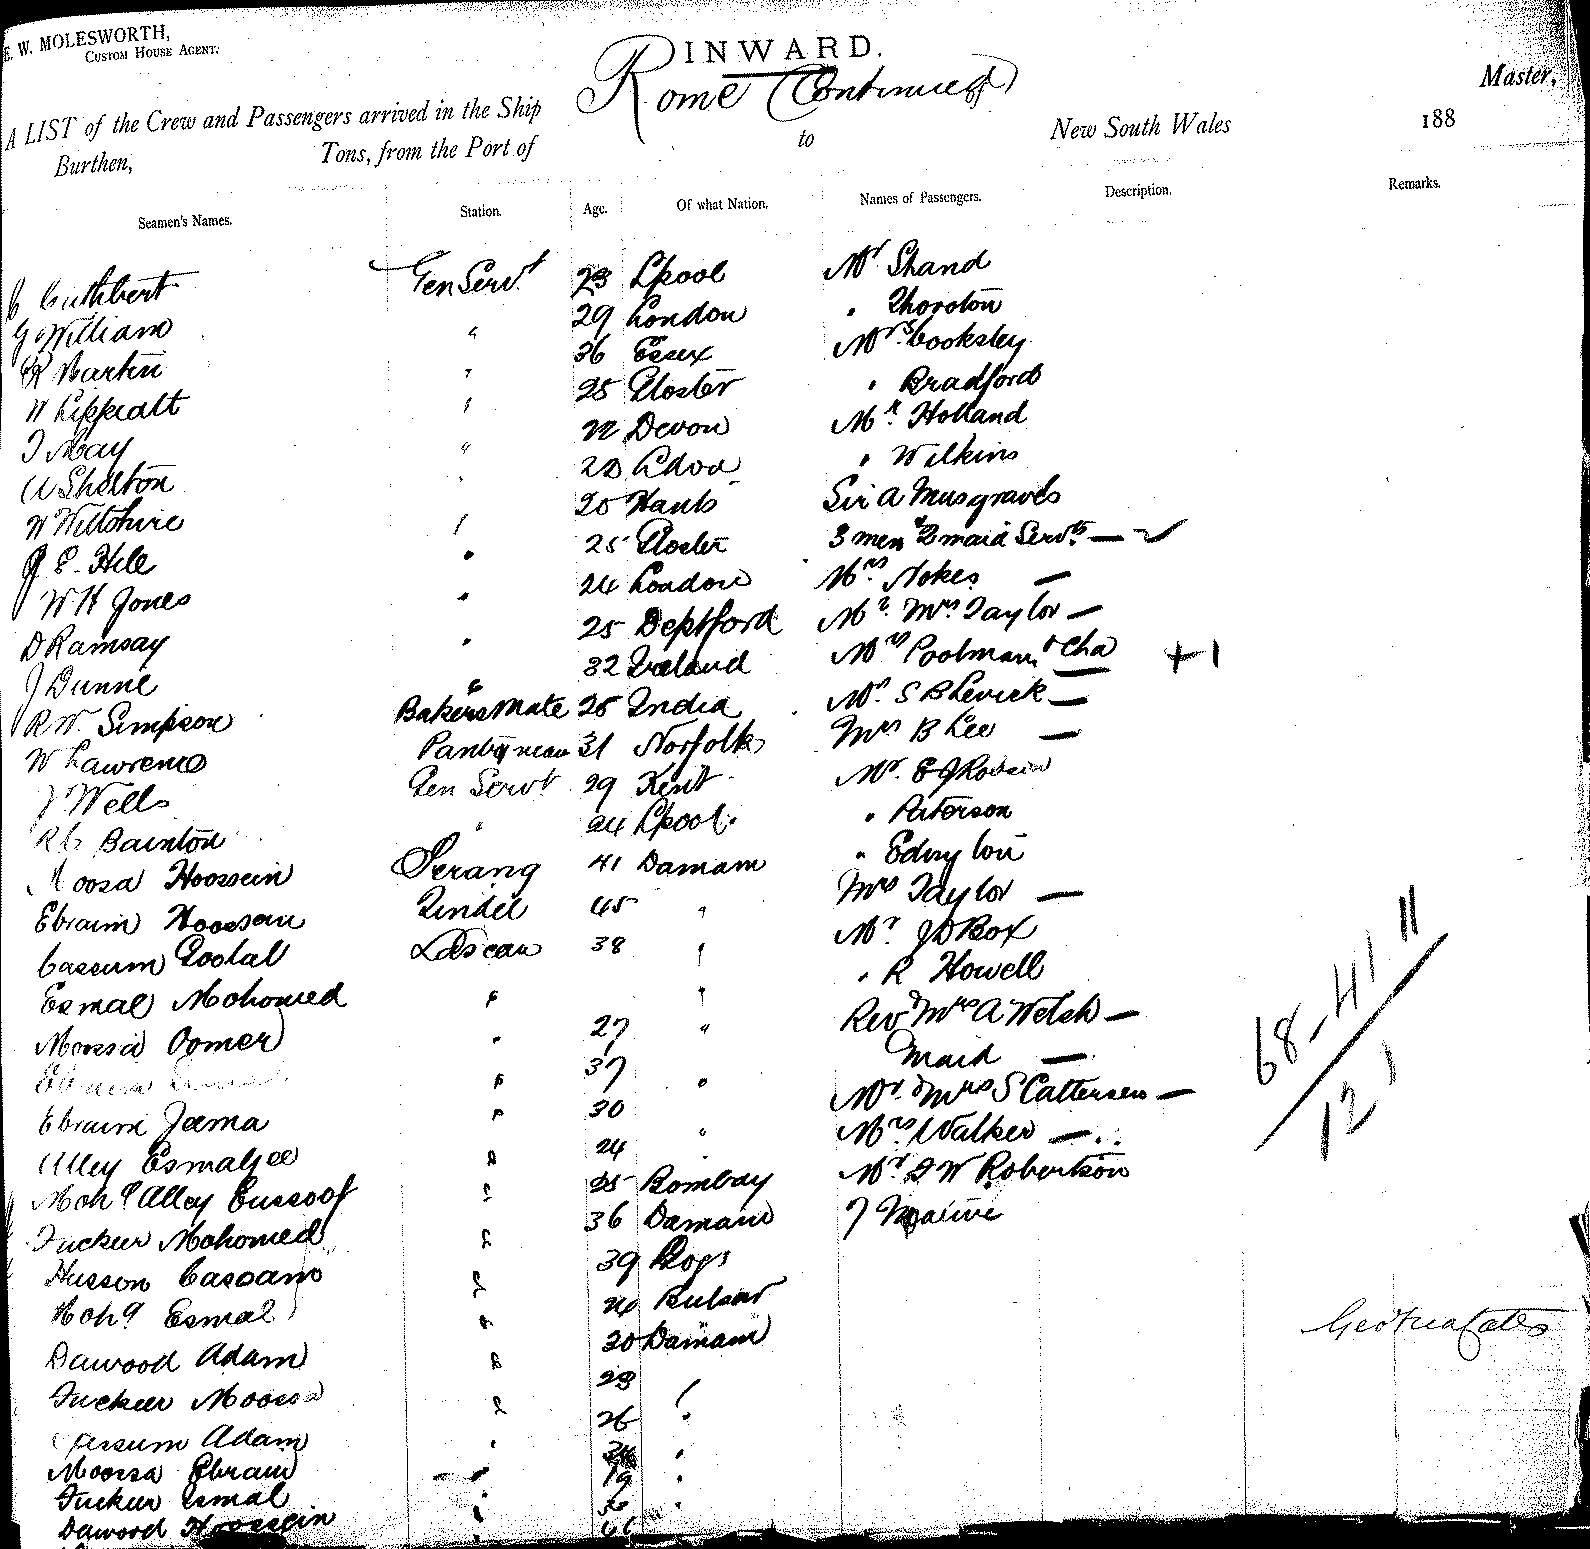 E. W. MOLESWORTH,
CUSTOM HOUSE AGENT.
INWARD.
Rome (Continued)
Master,
A LIST of the Crew and Passengers arrived in the Ship
New South Wales 188
Burthen, Tons, from the Port of to
Seamen's Names. Station. Age. Of what Nation. Names of Passengers. Description. Remarks.
C Cuthbert Gen Servt 23 Lpool Mr Shand
G William " 29 London " Thornton
R Martin " 36 Essex Mrs Cooksley
W Lippeatt " 25 Gloster " Bradford
J May " 22 Devon Mr Holland
A Shelton " " Wilkins
W Wiltshire " 20 Hants Sir A Musgraves
J E. Hile " 25 Gloster 3 men & 2 maid Servts —
W H Jones " 24 London Mrs Nokes —
D Ramsay " 25 Deptford Mr. Mrs Taylor —
J Dunne " 32 Ireland Mrs Poolman & Cha + 1
R W. Simpson Bakers Mate 25 India Mr. S B Levick —
W Lawrence Pantryman 31 Norfolk Mrs B Lee —
J Wells Gen Servt 29 Kent Mr. E J
R C Bainton " 24 Lpool. " Paterson
Moosa Hoossein Serang 41 Damam "
Ebraim Hoossein Tindel 45 " Mrs Taylor —
Cassum Lascar 38 " Mr J D Box
Esmal Mohomed " " " R Howell
Moossa Oomer " 27 " Rev & Mrs A Welsh —
" 37 " Maid —
Ebraim Jama " 30 " Mr. & Mrs S Cattersen —
Alley Esmaljee " 24 " Mrs Walker —
Mohd Alley Eussoof " 25 Bombay Mr J W Robertson
Fuckeer Mohomed " 36 Damam
Husson " 39
Mohd Esmal " Bulsar
Dawood Adam " 20 Damam
Fuckeer Moossa " 23 "
Cassum Adam " 26 "
Moossa Ebraim " "
Fuckeer Esmal " 19 "
Dawood Hoossein " "
68 - 41 11
12 1